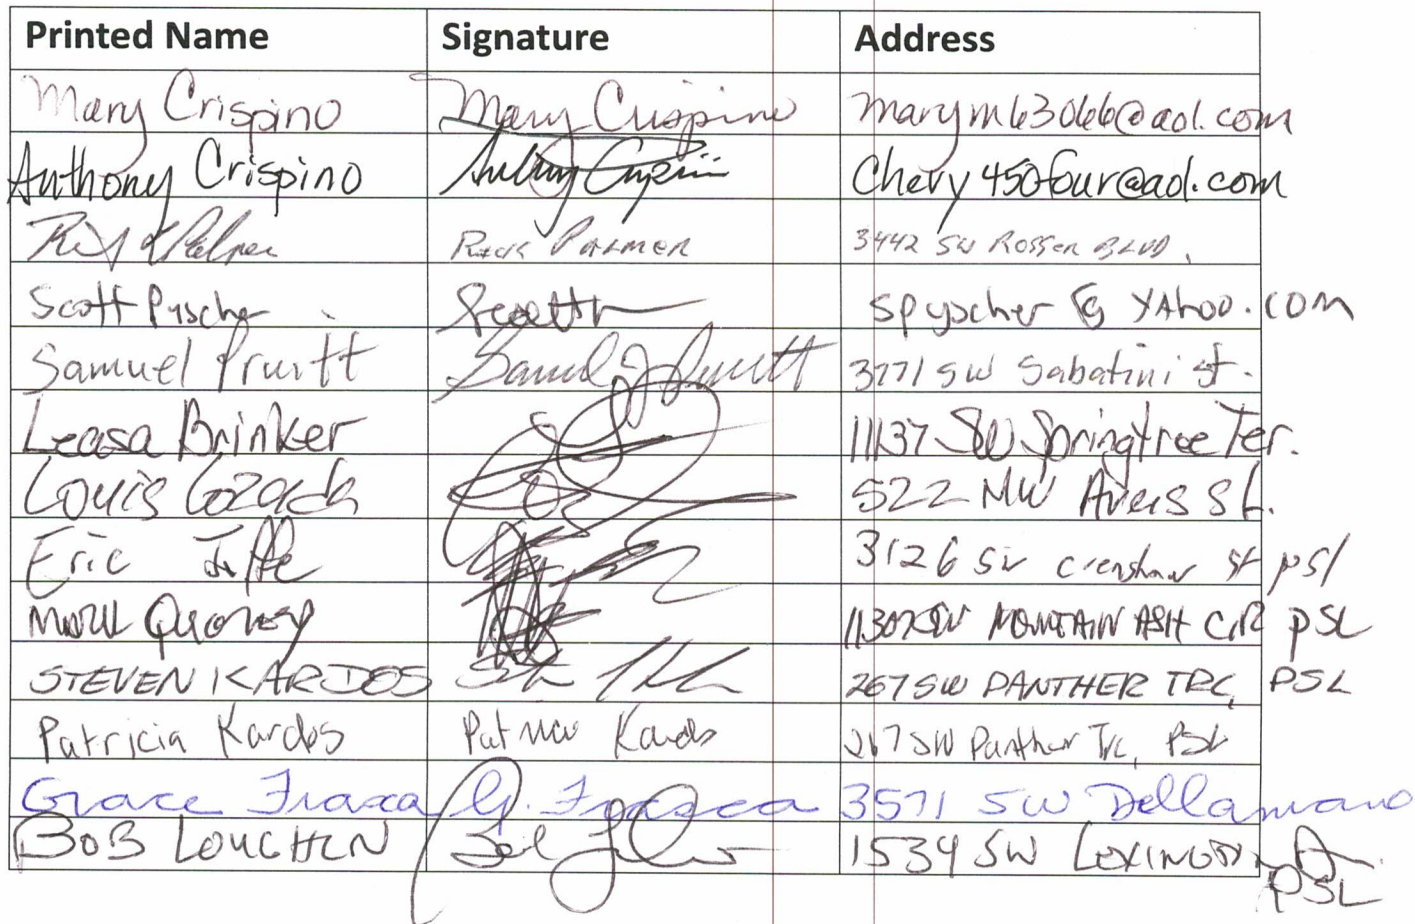 Printed Name Signature Address
Mary Crispino Mary Crispino marym63066@aol.com
Anthony Crispino Chevy450four@aol.com
Rick Palmer 3442 SW Rosser BLVD,
Scott Pyscher Scott spyscher @ YAHOO.COM
Samuel Pruitt Samuel J Pruitt 3771 SW Sabatini st.
Leasa Brinker 11137 SW Springtree Ter.
Louis Lozada 522 NW Avens St.
Eric 3126 SW Crenshaw st psl
MARK 11307 SW MOUNTAIN ASH CIR PSL
STEVEN KARDOS 267 SW PANTHER TRC, PSL
Patricia Kardos Patricia Kardos 267 SW Panther Trc, PSL
Grace Frasca G. Frasca 3571 SW Dellamano
BOB LOUGHLN Bob 1534 SW LEXINGTON Dr.
PSL